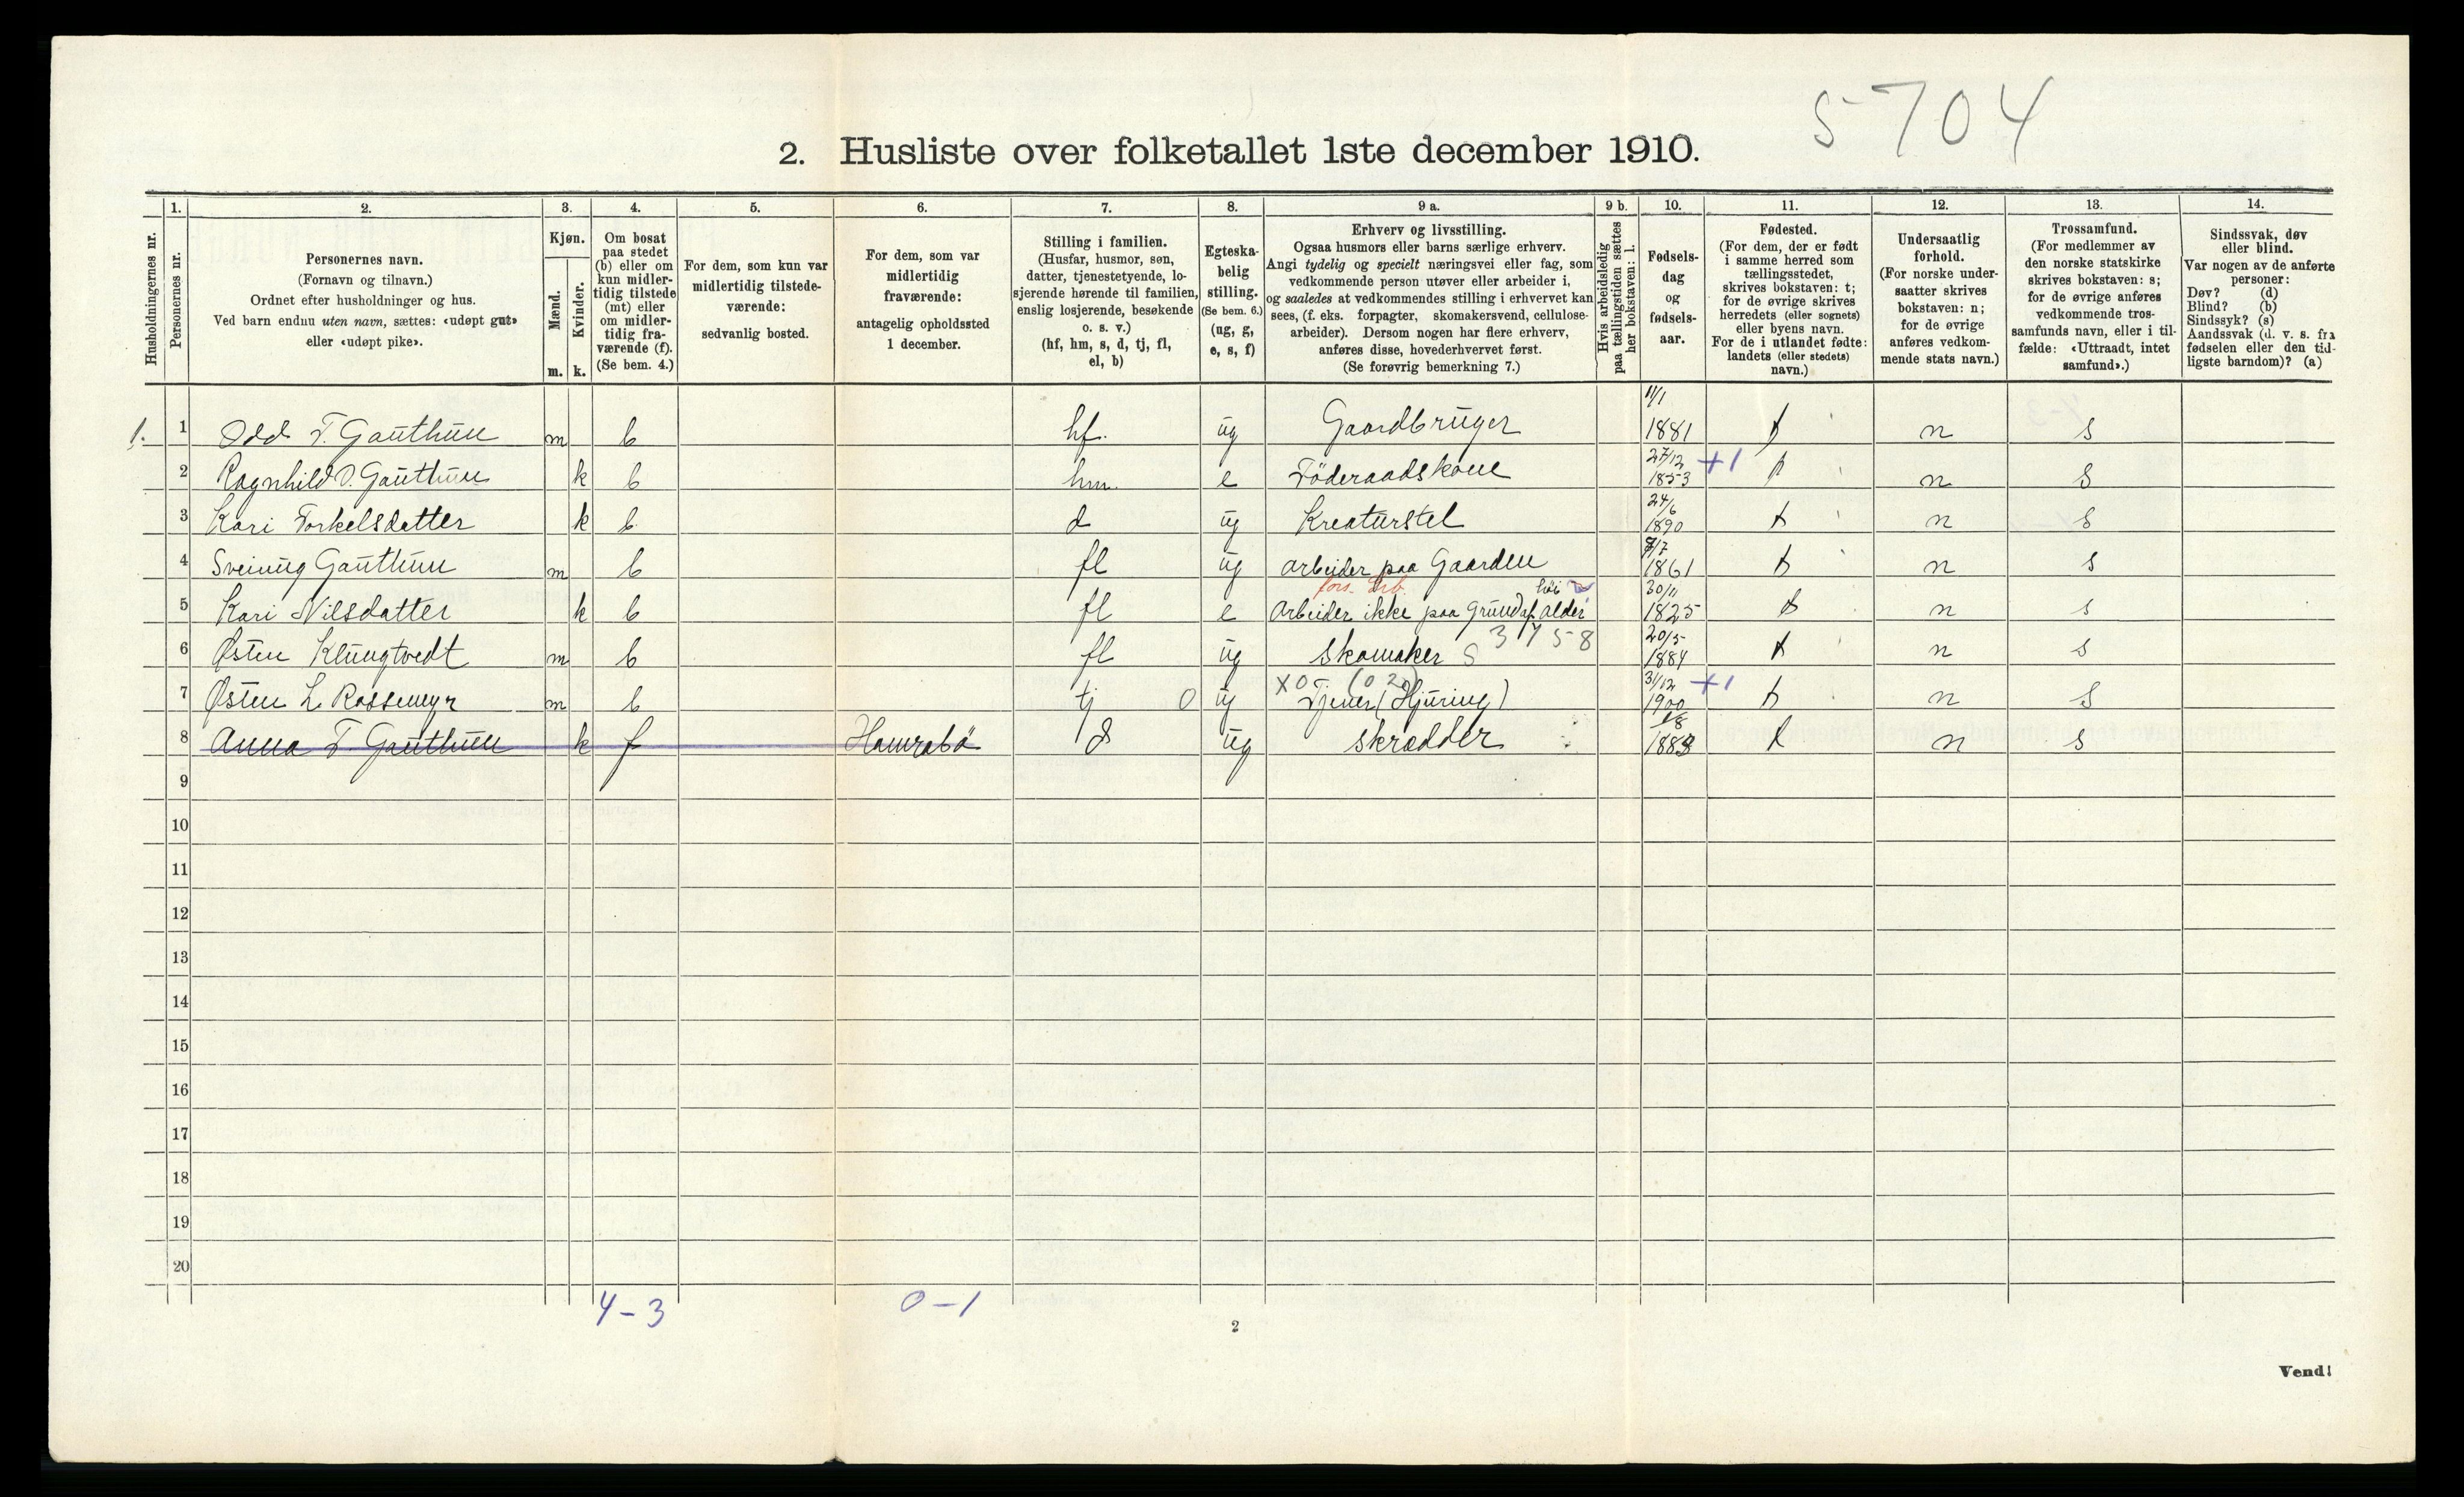 5704
2. Husliste over folketallet 1ste december 1910.
Husholdningernes nr.
1. Personernes nr.
2. Personernes navn. (Fornavn og tilnavn.) Ordnet efter husholdninger og hus. Ved barn endnu uten navn, sættes: «udøpt gut» eller «udøpt pike».
3. Kjøn. Mænd. m. Kvinder. k.
4. Om bosat paa stedet (b) eller om kun midlertidig tilstede (mt) eller om midlertidig fraværende (f). (Se bem. 4.)
5. For dem, som kun var midlertidig tilstedeværende: sedvanlig bosted.
6. For dem, som var midlertidig fraværende: antagelig opholdssted 1 december.
7. Stilling i familien. (Husfar, husmor, søn, datter, tjenestetyende, losjerende hørende til familien, enslig losjerende, besøkende o. s. v.) (hf, hm, s, d, tj, fl, el, b)
8. Egteskabelig stilling. (Se bem. 6.) (ug, g, e, s, f)
9 a. Erhverv og livsstilling. Ogsaa husmors eller barns særlige erhverv. Angi tydelig og specielt næringsvei eller fag, som vedkommende person utøver eller arbeider i, og saaledes at vedkommendes stilling i erhvervet kan sees, (f. eks. forpagter, skomakersvend, cellulosearbeider). Dersom nogen har flere erhverv, anføres disse, hovederhvervet først. (Se forøvrig bemerkning 7.)
9 b. Hvis arbeidsledig paa tællingstiden sættes her bokstaven: l.
10. Fødselsdag og fødselsaar.
11. Fødested. (For dem, der er født i samme herred som tællingsstedet, skrives bokstaven: t; for de øvrige skrives herredets (eller sognets) eller byens navn. For de i utlandet fødte: landets (eller stedets) navn.)
12. Undersaatlig forhold. (For norske undersaatter skrives bokstaven: n; for de øvrige anføres vedkommende stats navn.)
13. Trossamfund. (For medlemmer av den norske statskirke skrives bokstaven: s; for de øvrige anføres vedkommende trossamfunds navn, eller i tilfælde: «Uttraadt, intet samfund».)
14. Sindssvak, døv eller blind. Var nogen av de anførte personer: Døv? (d) Blind? (b) Sindssyk? (s) Aandssvak (d. v. s. fra fødselen eller den tidligste barndom)? (a)
1. 1 Odd T. Gauthun m b hf. ug Gaardbruger 11/1 1881 t n s
2 Ragnhild O. Gauthun k b hm. e Föderaadskone 27/12 1853 +1 t n s
3 Kari Torkelsdatter k b d ug Kreaturstel 24/6 1890 t n s
4 Sveinug Gauthun m b fl ug arbeider paa Gaarden 7/7 1861 t n s
5 Kari Nilsdatter k b fl e Arbeider ikke paa Grund af höi alder fors. 30/11 1825 t n s
6 Østen Klungtvedt m b fl ug Skomaker S 3758 20/5 1884 t n s
7 Østen L Rossemyr m b tj 0 ug XO (02) Tjener (Hjuring) 31/12 1900 +1 t n s
8 Anna T. Gauthun k f Hamrabö d ug skrædder 1/8 1883 t n s
9
10
11
12
13
14
15
16
17
18
19
20
4-3 0-1
2
Vend!